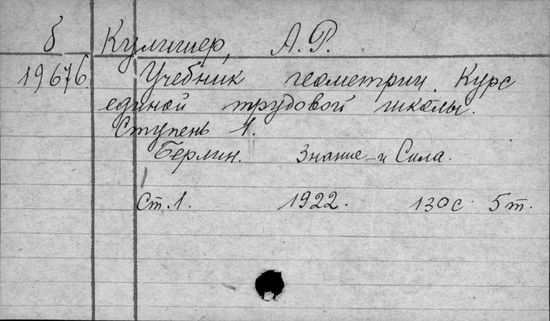 б Кулишер, А.Р.
19676. Учебник геометрии. Курс
единой трудовой школы.
Ступень 1.
Берлин. Знание и Сила.
Ст.1. 1922. 130с. 5т.